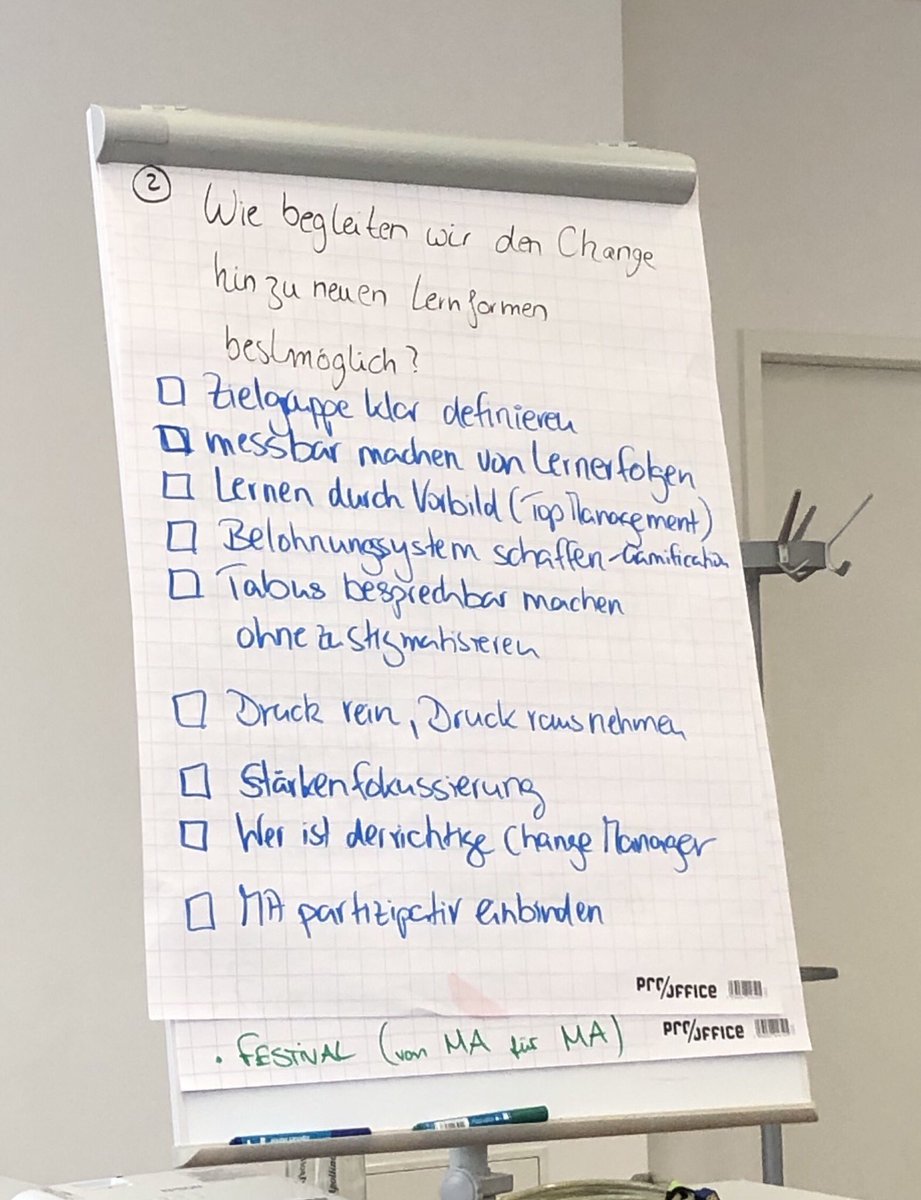 2
Wie begleiten wir den Change
hin zu neuen Lernformen
bestmöglich?
Zielgruppe klar definieren
messbar machen von Lernerfolgen
Lernen durch Vorbild (Top Management)
Belohnungssystem schaffen - Gamification
Tabus besprechbar machen
ohne zu stigmatisieren
Druck rein, Druck rausnehmen
Stärkenfokussierung
Wer ist der richtige Change Manager
MA partizipativ einbinden
PRO/OFFICE
• FESTIVAL (von MA für MA)
PRO/OFFICE